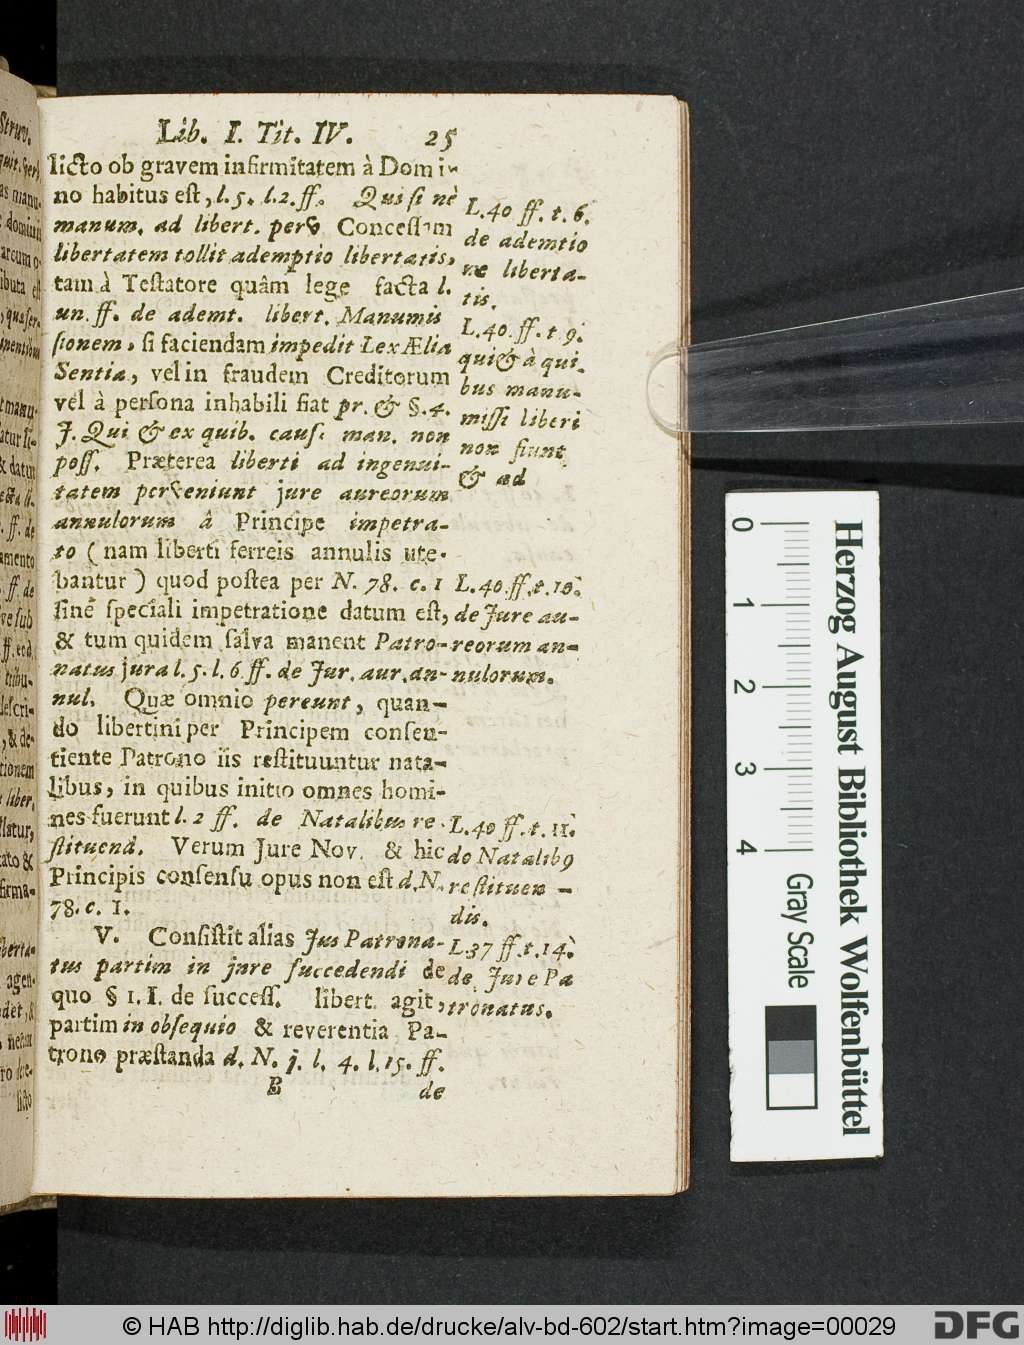 Lib. I. Tit. IV. 25
licto ob gravem infirmitatem à Domi-
no habitus est, l. 5. l. 2. ff. Qui si nè
manum. ad libert. perv. Concessam
libertatem tollit ademptio libertatis,
tam à Testatore quâm lege facta l.
un. ff. de ademt. libert. Manumis
sionem, si faciendam impedit Lex Ælia
Sentia, vel in fraudem Creditorum
vel à persona inhabili fiat pr. & §. 4.
J. Qui & ex quib. caus. man. non
poss. Præterea liberti ad ingenui-
tatem perveniunt jure aureorum
annulorum â Principe impetra-
to (nam liberti ferreis annulis ute-
bantur) quod postea per N. 78. c. 1
sine speciali impetratione datum est,
& tum quidem salva manent Patro-
natus jura l. 5. l. 6. ff. de Jur. aur. an-
nul. Quæ omnio pereunt, quan-
do libertini per Principem consen-
tiente Patrono iis restituuntur nata-
libus, in quibus initio omnes homi-
nes fuerunt l. 2 ff. de Natalibus re-
stituend. Verum Jure Nov. & hic
Principis consensu opus non est d. N.
78. c. 1.
V. Consistit alias Jus Patrona-
tus partim in jure succedendi de
quo § 1. I. de success. libert. agit,
partim in obsequio & reverentia Pa-
trono præstanda d. N. j. l. 4. l. 15. ff.
B de
L. 40 ff. t. 6.
de ademtio
ne liberta-
tis.
L. 40. ff. t 9.
qui & à qui.
bus manu-
missi liberi
non fiunt
& ad
L. 40. ff. t. 10.
de Jure au-
reorum an-
nulorum.
L. 40 ff. t. 11.
de Natalib9
restituen-
dis.
L. 37 ff. t. 14.
de Jure Pa
tronatus.
0 1 2 3 4
Gray Scale
Herzog August Bibliothek Wolfenbüttel
© HAB http://diglib.hab.de/drucke/alv-bd-602/start.htm?image=00029
DFG